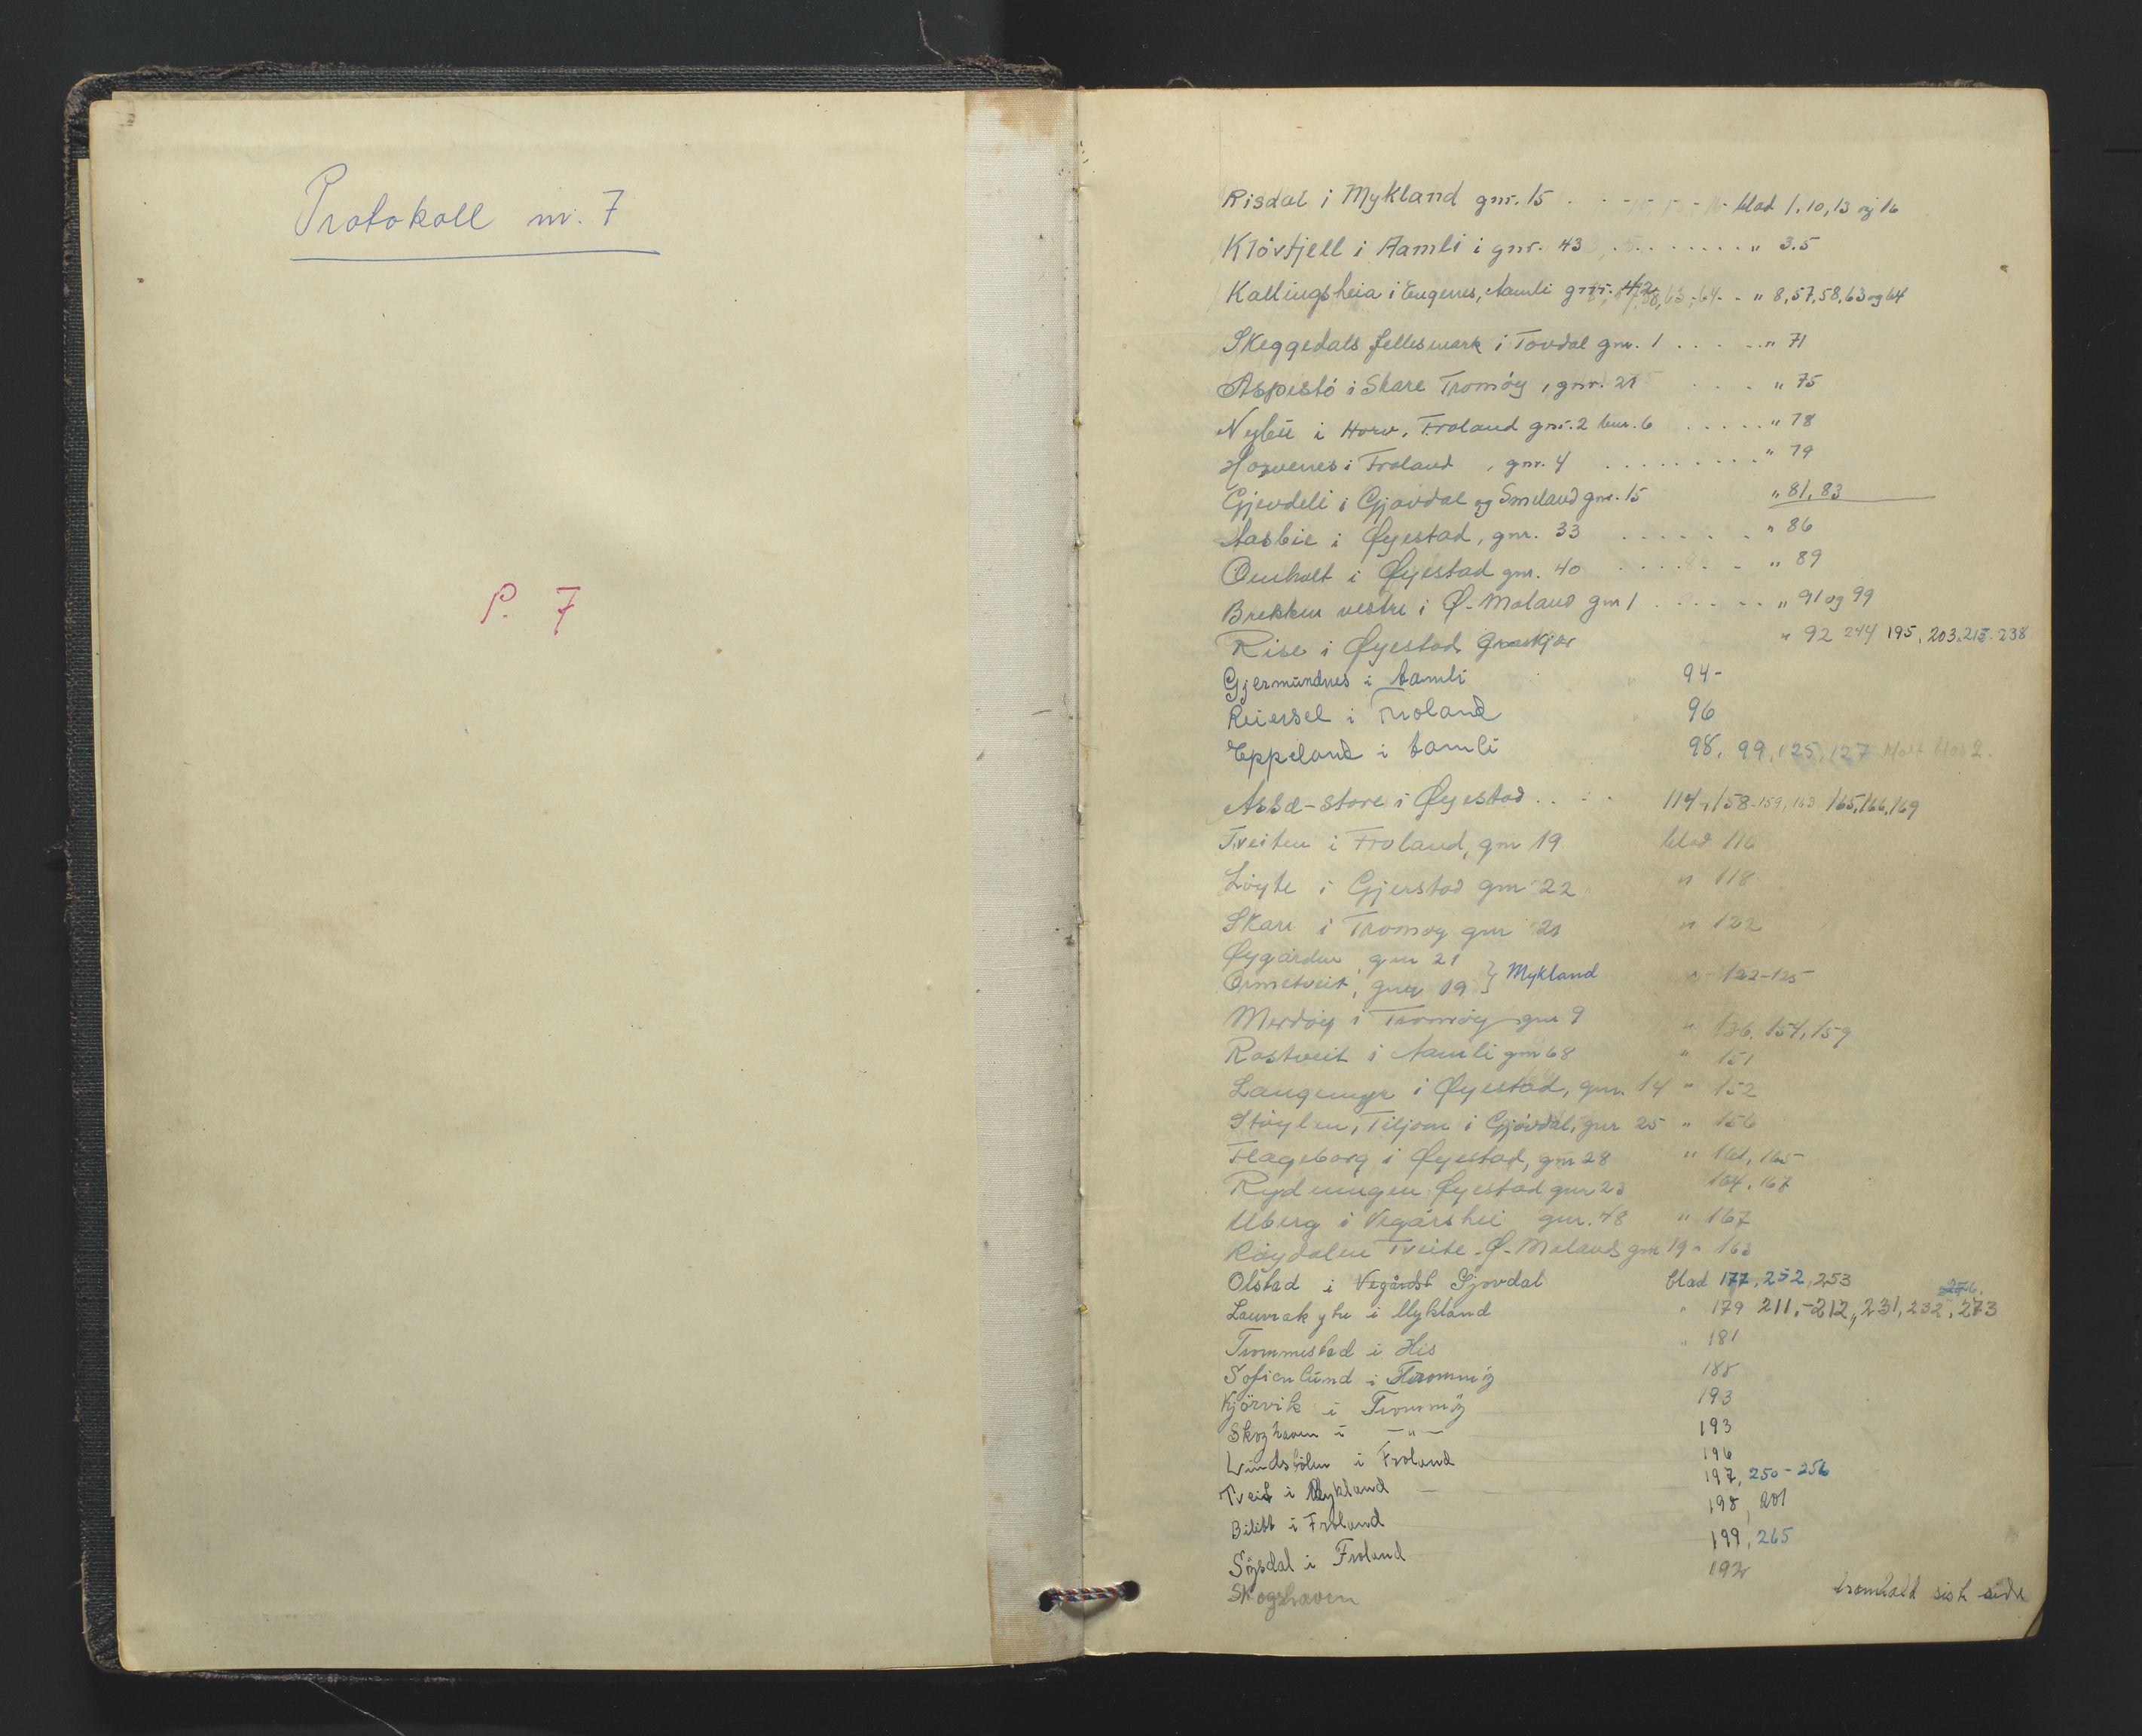 Protokoll nr. 7
P. 7
Risdal i Mykland gnr. 15 . . . blad 1, 10, 13 og 16
Kløvfjell i Aamli i gnr. 43 . . . . . . . . " 3.5
Kallingsheia i Engenes, Aamli gnr. 42 . . " 8, 57, 58, 63 og 64
Skeggedals fellesmark i Tovdal gnr. 1 . . . . . " 71
Aspestø i Skare Tromøy, gnr. 21 . . . " 75
Nybu i Horv, Froland gnr. 2 bnr. 6 . . . . . " 78
i Froland, gnr. 4 . . . . . . . . . " 79
Gjevdeli i Gjøvdal og Smeland gnr. 15 " 81, 83
Aasbie i Øyestad, gnr. 33 . . . . . . " 86
Omholt i Øyestad gnr. 40 . . . . . . " 89
Brekken vestre i Ø-Moland gnr 1 . . . . . " 91 og 99
Rise i Øyestad " 92 244 195, 203, 238
Gjermundnes i Aamli 94-
Reiersel i Froland 96
Eppeland i Aamli 98, 99, 125, 127
Assæ-store i Øyestad . . . . 114, 158-159, 163 165, 166, 169
Tveiten i Froland, gnr 19 blad 116
Løyte i Gjerstad gnr 22 " 118
Skare i Tromøy gnr 21 " 122
Øygarden, gnr 21
Ormetveit, gnr 19 } Mykland " 122-125
Merdøy i Tromøy gnr 9 " 136, 154, 159
Rostveit i Aamli gnr 68 " 151
Langemyr i Øyestad, gnr. 14 " 152
Støylen, Tiljom i Gjøvdal, gnr 25 " 156
Flageborg i Øyestad, gnr 28 " 161, 165
Rydningen Øyestad gnr 23 164, 167
Uberg i Vegårshei gnr. 48 " 167
Røydalen Tveite - Ø-Moland gnr 19 " 163
Olstad i Vegårsh Gjøvdal blad 177, 252, 253
276.
i Mykland " 179 211,-212,, 231, 232, 273
Trommestad i His " 181
Sofienlund i Trommøy 188
Kjørvik i Trommøy 193
Skoghaven i -"- 193
Lundstølen i Froland 196
Tveit i Mykland 197, 250-256
i Froland 198, 201
i Froland 199, 265
Skogshaven 192
framhald sist side